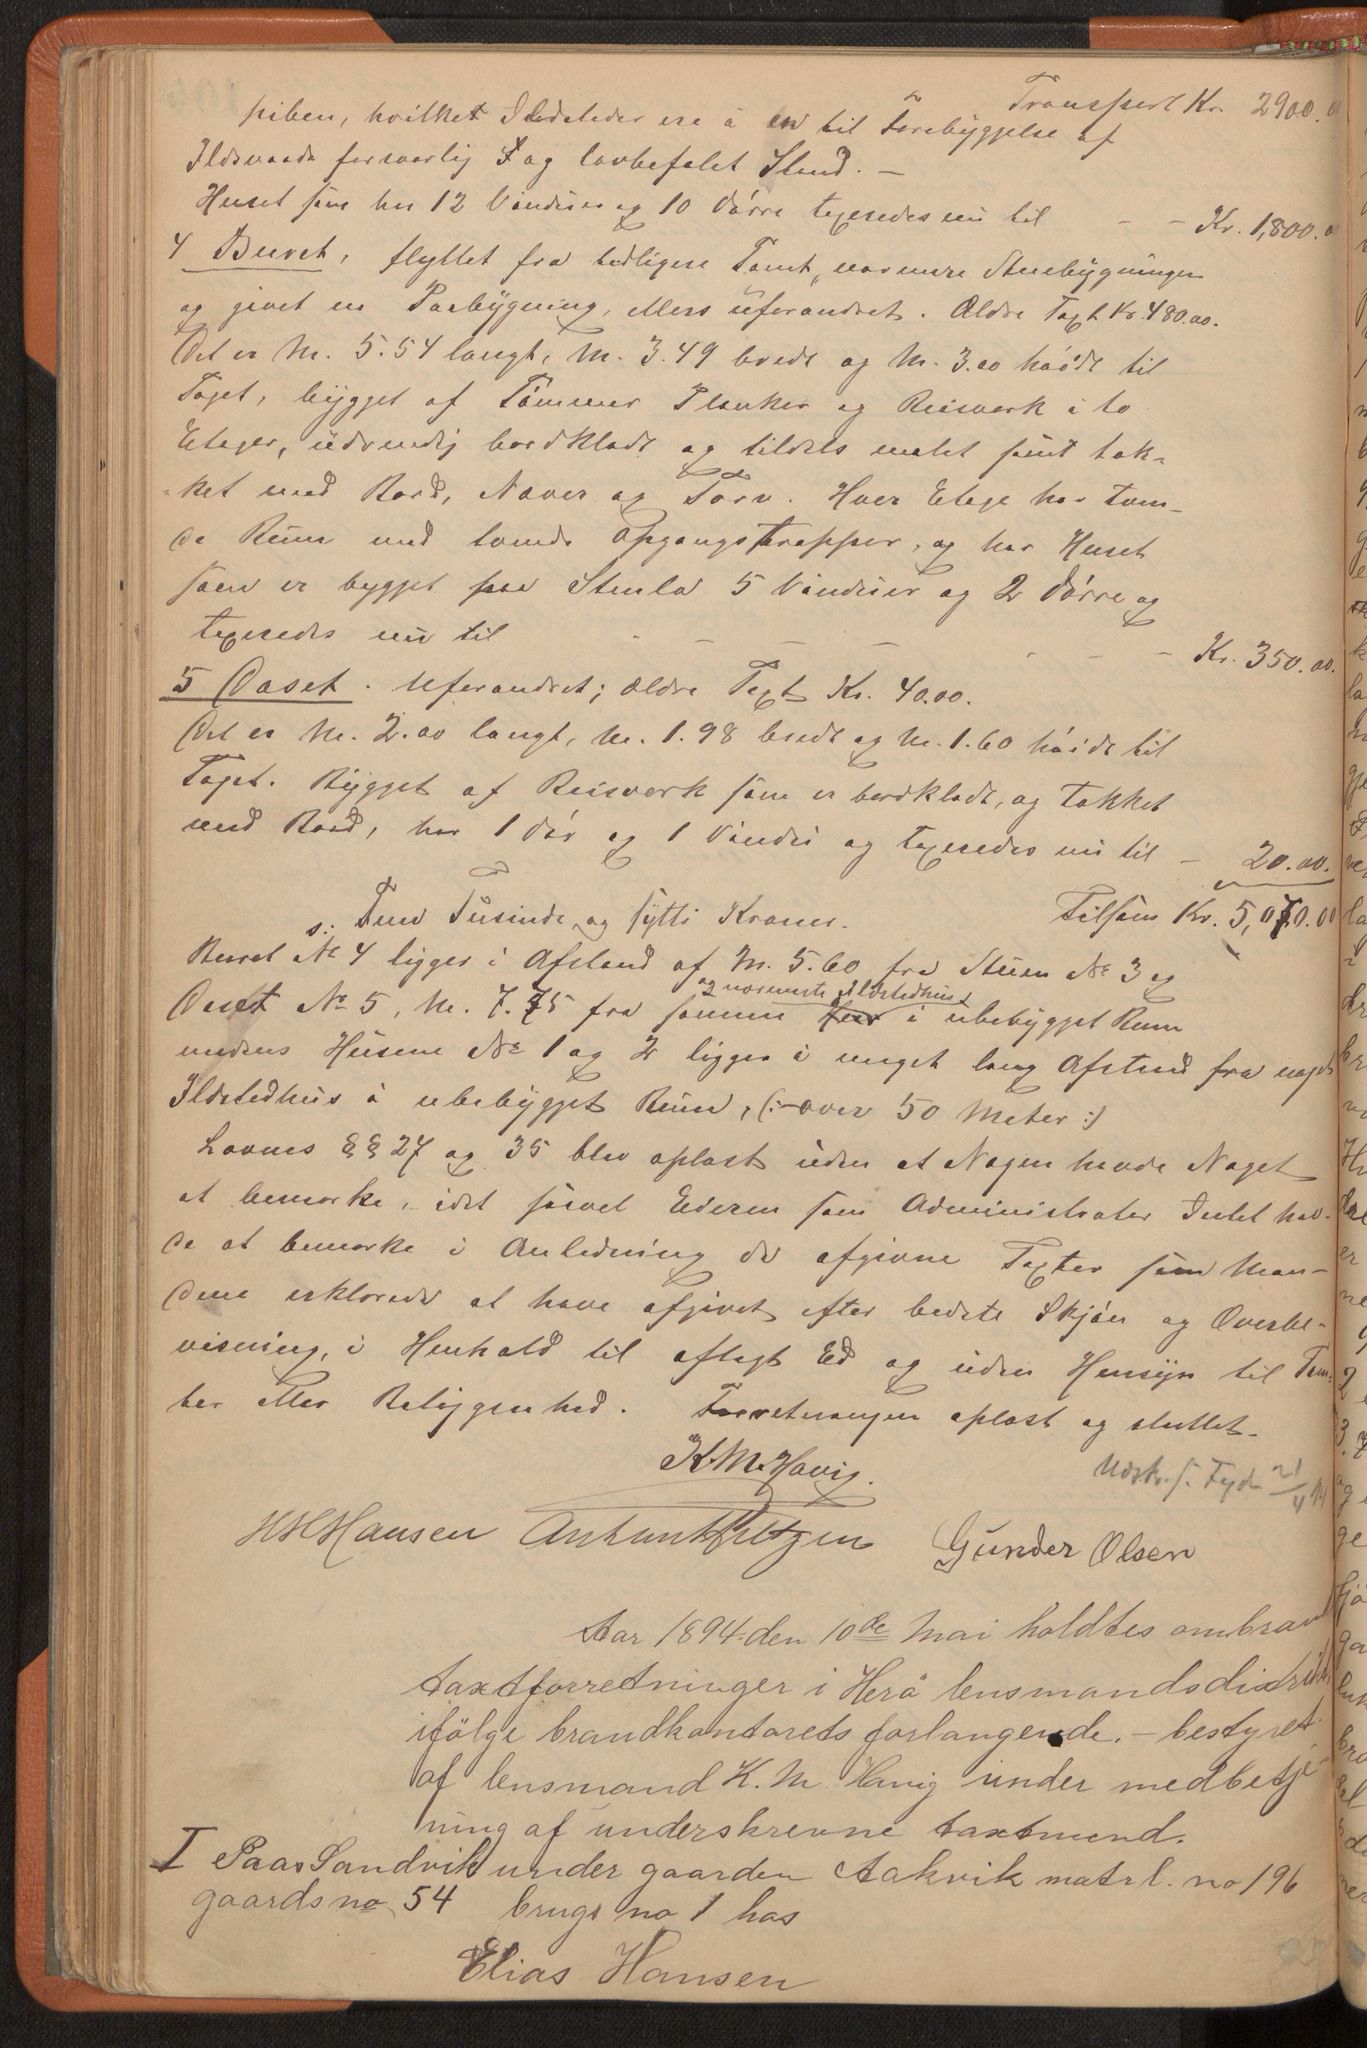 Transport Kr. 2900.00
piben, hvilket Ildsteder ere i en til Forebyggelse af
Ildsvaade forsvarlig og lovbefalet Stand. —
Huset som har 12 Vinduer og 10 Dörre taxeredes nu til - - Kr. 1,800.00
4 Buret, flyttet fra tidligere Tomt, nærmere Stuebygningen
og givet en Paabygning, ellers uforandret. Ældre Taxt Kr. 480.00.
Det er M. 5.54 langt, M. 3.49 bredt og M. 3.00 höidt til
Taget, bygget af Tömmer Planker og Reisverk i to
Etager, udvendig bordklædt og tildels malet samt tæk-
ket med Bord, Næver og Torv. Hver Etage har tven-
de Rum med tvende Opgangstrapper, og har Huset
som er bygget paa Stenla 5 Vinduer og 2 Dörre og
taxeredes nu til - - - - - - - Kr. 350.00.
5 Daset. Uforandret; ældre Taxt Kr. 40.00.
Det er M. 2.00 langt, M. 1.98 bredt og M. 1.60 höidt til
Taget. Bygget af Reisverk som er bordklædt, og tækket
med Bord, har 1 Dör og 1 Vindu og taxeredes nu til - 20.00.
Tilsam Kr. 5,070.00
s: Fem Tusinde og sytti Kroner.
Buret No 4 ligger i Afstand af M. 5.60 fra Stuen No 3 og
og nærmeste Ildstedhus
Daset No 5, M. 7.75 fra samme Hus i ubebygget Rum
medens Husene No 1 og 2 ligger i meget lang Afstand fra noget
Ildstedhus i ubebygget Rum, (:- over 50 Meter :)
Lovens §§ 27 og 35 blev oplæst uden at Nogen havde Noget
at bemærke, idet saavel Eieren som Administrator Intet hav-
de at bemærke i Anledning de afgivne Taxter som Mæn-
dene erklærede at have afgivet efter bedste Skjön og Overbe-
visning, i Henhold til aflagt Ed og uden Hensyn til Tom-
ter eller Beliggenhed. Forretningen oplæst og sluttet.
K. M. Havig.
Udskr. s. Tyd. 21/4 94
H H Hansen
Gunder Olsen
Aar 1894 den 10de Mai holdtes ombrand
taxtforretninger i Herö lensmandsdistrikt
ifölge brandkontorets forlangende. - bestyret
af lensmand K. M. Havig under medbetje-
ning af underskrevne taxtmend.
I Paa Sandvik under gaarden Aakvik matrl. no 196
gaards no 54 brugs no 1 hos
Elias Hansen